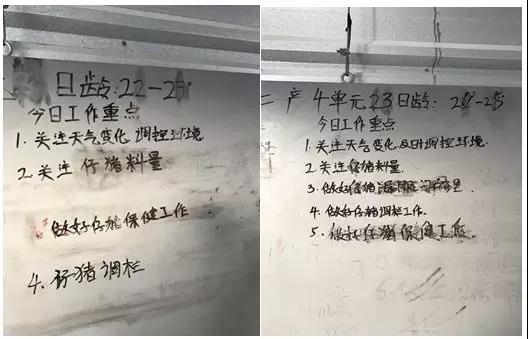 日龄:22-2
今日工作重点
1. 关注天气变化 调控环境.
2. 关注仔猪料量
做好仔猪保健工作
4. 仔猪调栏
二产4单元23日龄: 2 -25
今日工作重点
1. 关注天气变化及时调控环境.
2. 关注仔猪料量.
3. 做好仔猪
4. 做好仔猪调栏工作.
5. 做好仔猪保健工作.